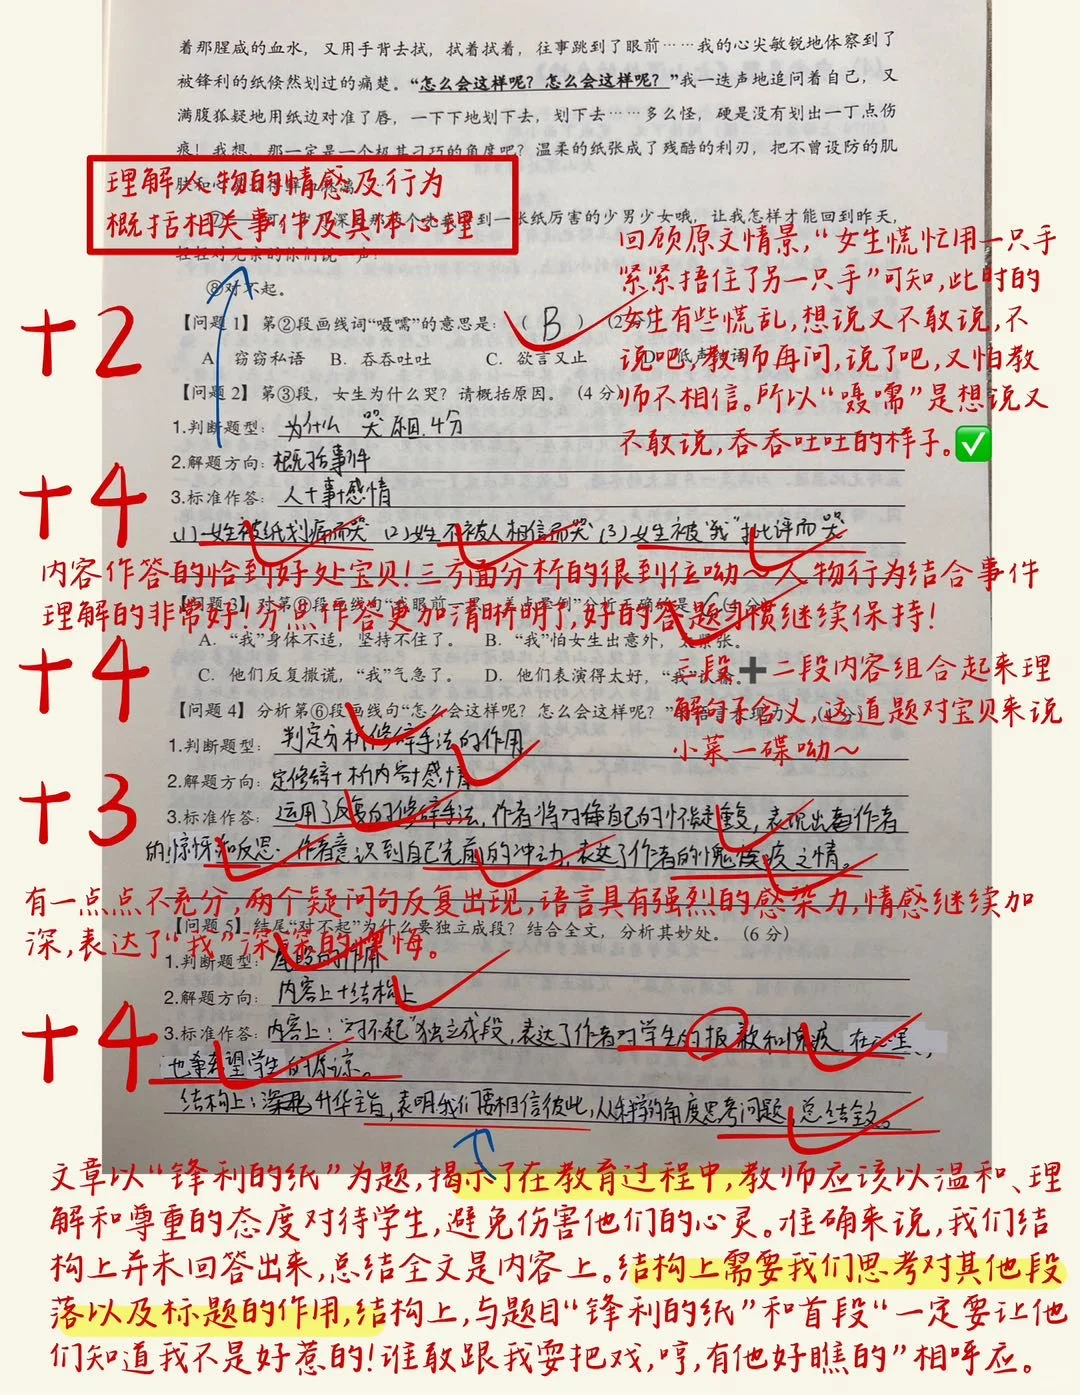 着那腥咸的血水，又用手背去拭，拭着拭着，往事跳到了眼前……我的心尖敏锐地体察到了
被锋利的纸倏然划过的痛楚。“怎么会这样呢？怎么会这样呢？”我一迭声地追问着自己，又
满腹狐疑地用纸边对准了唇，一下下地划下去，划下去……多么怪，硬是没有划出一丁点伤
痕！我想，那一定是一个极其刁巧的角度吧？温柔的纸张成了残酷的利刃，把不曾设防的肌
肤和心
理解人物的情感及行为
概括相关事件及具体心理
到一张纸厉害的少男少女哦，让我怎样才能回到昨天，
⑧对不起。
回顾原文情景，“女生慌忙用一只手
紧紧捂住了另一只手”可知，此时的
女生有些慌乱，想说又不敢说，不
说吧，教师再问，说了吧，又怕教
师不相信。所以“嗫嚅”是想说又
不敢说，吞吞吐吐的样子。✅
+2
【问题 1】第②段画线词“嗫嚅”的意思是：（ B ）（2分）
A. 窃窃私语 B. 吞吞吐吐 C. 欲言又止 D. 低声细语
【问题 2】第③段，女生为什么哭？请概括原因。（4 分）
1.判断题型：为什么 哭 原因.4分
2.解题方向：概括事件
+4
3.标准作答：人+事+感情
(1)女生被纸划痛而哭 (2)女生不被人相信而哭 (3)女生被“我”批评而哭
内容作答的恰到好处宝贝！三方面分析的很到位呦～人物行为结合事件
理解的非常好！分点作答更加清晰明了，好的答题习惯继续保持！
【问题 3】对第⑥段画线句“我眼前一黑，差点晕倒”分析正确的是（ C ）（4分）
A. “我”身体不适，坚持不住了。 B. “我”怕女生出意外，太紧张。
+4
C. 他们反复撒谎，“我”气急了。 D. 他们表演得太好，“我”
三段➕二段内容组合起来理
解句子含义，这道题对宝贝来说
小菜一碟呦～
【问题 4】分析第⑥段画线句“怎么会这样呢？怎么会这样呢？”的语言表现力。（4分）
1.判断题型：判定分析修辞手法的作用
2.解题方向：定修辞+析内容+感情
+3
3.标准作答：运用了反复的修辞手法，作者将对自己的怀疑重复，表现出着作者
的惊讶和反思。作者意识到自己先前的冲动，表达了作者的愧疚之情。
有一点点不充分，两个疑问句反复出现，语言具有强烈的感染力，情感继续加
深，表达了“我”深深的懊悔。
【问题 5】结尾“对不起”为什么要独立成段？结合全文，分析其妙处。（6 分）
1.判断题型：尾段的作用
2.解题方向：内容上+结构上
+4
3.标准作答：内容上：“对不起”独立成段，表达了作者对学生的报歉和愧疚，在心里
也希望学生的原谅。
结构上：升华主旨，表明我们要相信彼此，从科学的角度思考问题，总结全文。
文章以“锋利的纸”为题，揭示了在教育过程中，教师应该以温和、理
解和尊重的态度对待学生，避免伤害他们的心灵。准确来说，我们结
构上并未回答出来，总结全文是内容上。结构上需要我们思考对其他段
落以及标题的作用，结构上，与题目“锋利的纸”和首段“一定要让他
们知道我不是好惹的！谁敢跟我耍把戏，哼，有他好瞧的”相呼应。